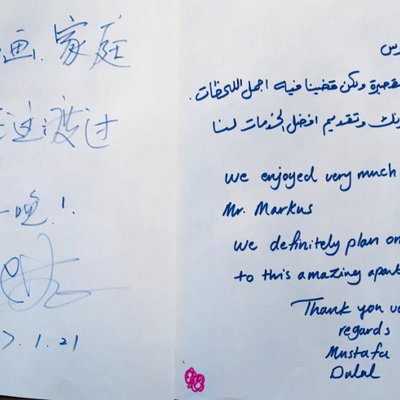 画、家庭
这渡过
一晚！
7.1.21
قصيرة ولكن قضينا فيه اجمل اللحظات.
وتقديم افضل الخدمات لنا
we enjoyed very much
Mr. Markus
we definitely plan on
to this amazing apart
Thank you
regards
Mustafa
Dalal